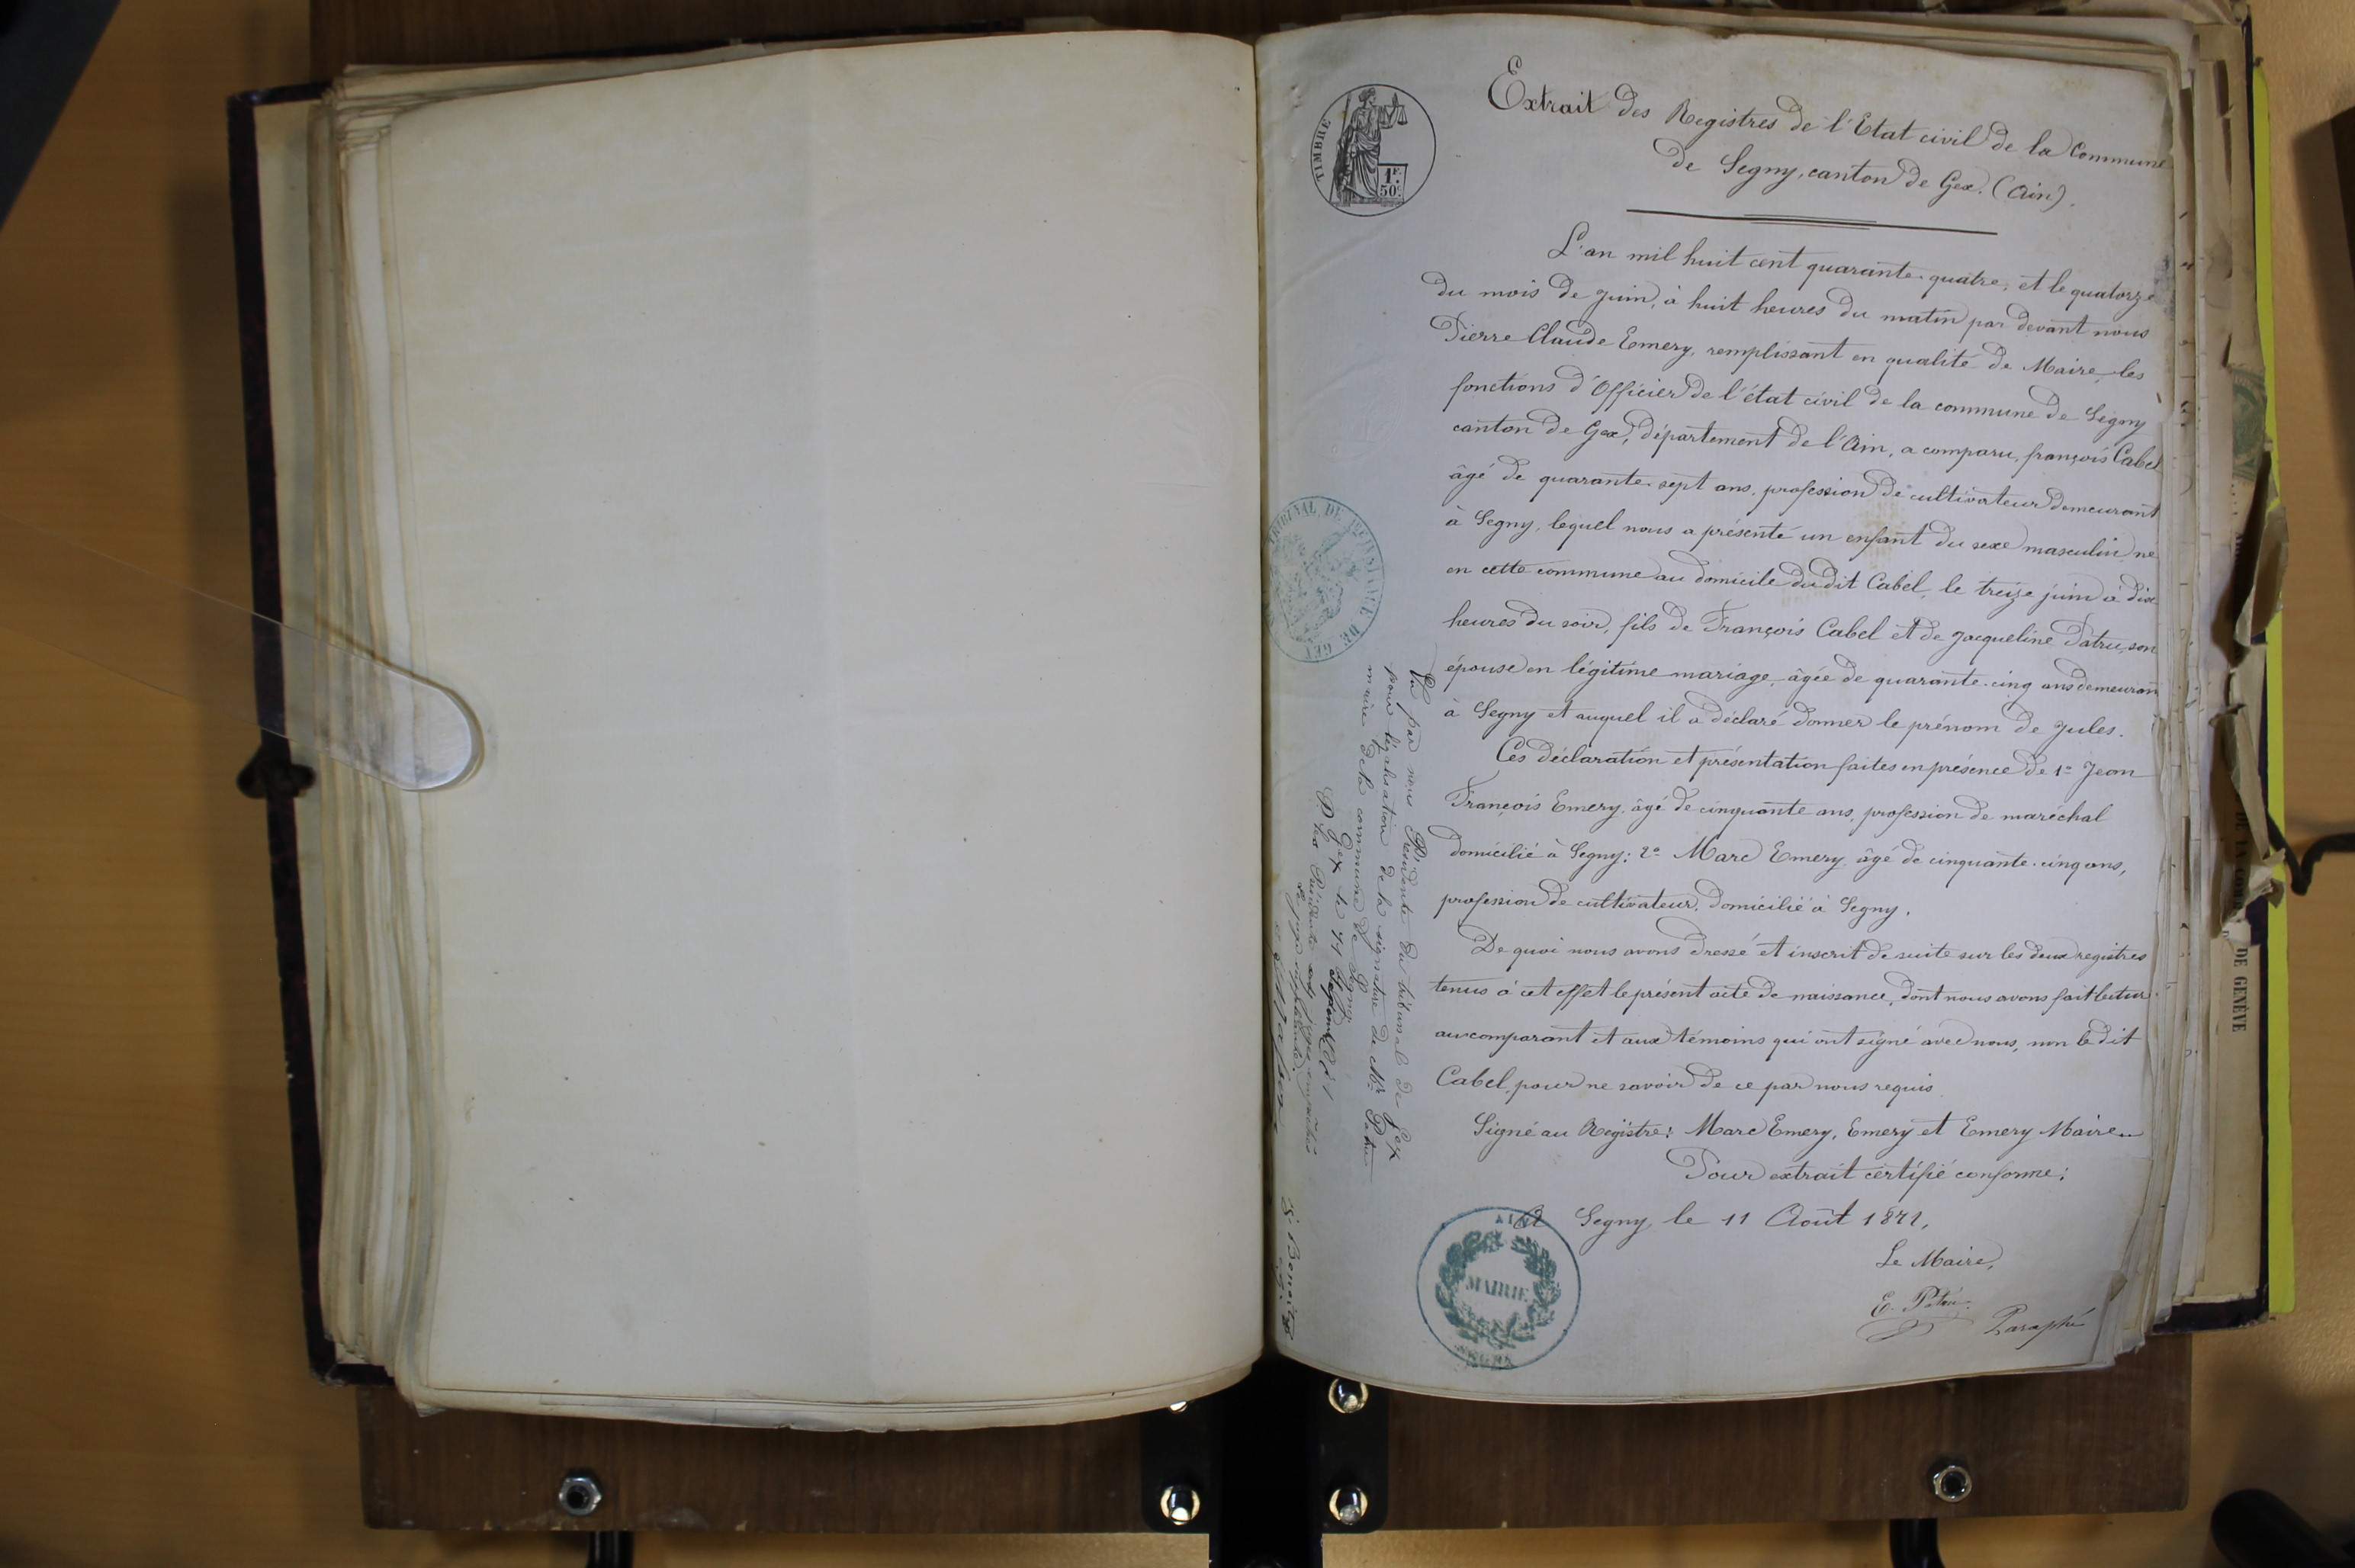 TIMBRE
1F.
50c.
Extrait des Registres de l'Etat civil de la Commune
de Segny, canton de Gex. (Ain).
L'an mil huit cent quarante-quatre, et le quatorze
du mois de juin, à huit heures du matin par devant nous
Pierre Claude Emery, remplissant en qualité de Maire, les
fonctions d'Officier de l'état civil de la commune de Segny
canton de Gex, département de l'Ain, a comparu, françois Cabel
âgé de quarante-sept ans, profession de cultivateur demeurant
à Segny, lequel nous a présenté un enfant du sexe masculin né
en cette commune au domicile du dit Cabel, le treize juin à dix
heures du soir, fils de François Cabel et de Jacqueline Patru, son
épouse en légitime mariage, âgée de quarante-cinq ans demeuran
à Segny et auquel il a déclaré donner le prénom de Jules.
Ces déclaration et présentation faites en présence de 1° Jean
François Emery, âgé de cinquante ans, profession de maréchal
domicilié à Segny; 2° Marc Emery, âgé de cinquante-cinq ans,
profession de cultivateur, domicilié à Segny.
De quoi nous avons dressé et inscrit de suite sur les deux registres
tenus à cet effet le présent acte de naissance, dont nous avons fait lectur
au comparant et aux témoins qui ont signé avec nous, non le dit
Cabel, pour ne savoir de ce par nous requis.
Signé au Registre: Marc Emery, Emery et Emery Maire
Pour extrait certifié conforme;
A Segny, le 11 Août 1871,
Le Maire,
E. Patru
Paraphé
AIN
MAIRIE
SEGNY
TRIBUNAL DE 1ERE INSTANCE DE GEX
Vu par nous Président du tribunal de Gex
pour légalisation de la signature de Mr Patru
maire de la commune de Segny.
Gex le
DE GENÈVE